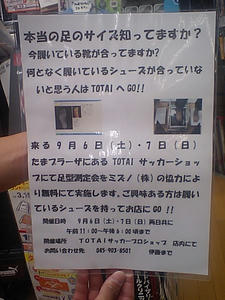 本当の足のサイズ知ってますか?
今履いている靴が合ってますか?
何となく履いているシューズが合っていな
いと思う人はTOTAIへGO!!
来る9月6日(土)・7日(日)
たまプラーザにある TOTAI サッカーショ
ップにて足型測定会をミズノ(株)の協力によ
り無料にて実施します。ご興味ある方は履い
ているシューズを持ってお店に GO!!
開催日時 9月6日(土)・7日(日)両日共に
午前11:00~午後6:00頃まで
開催場所 TOTAIサッカープロショップ 店内にて
お問い合わせ先 045-903-8501 伊藤まで